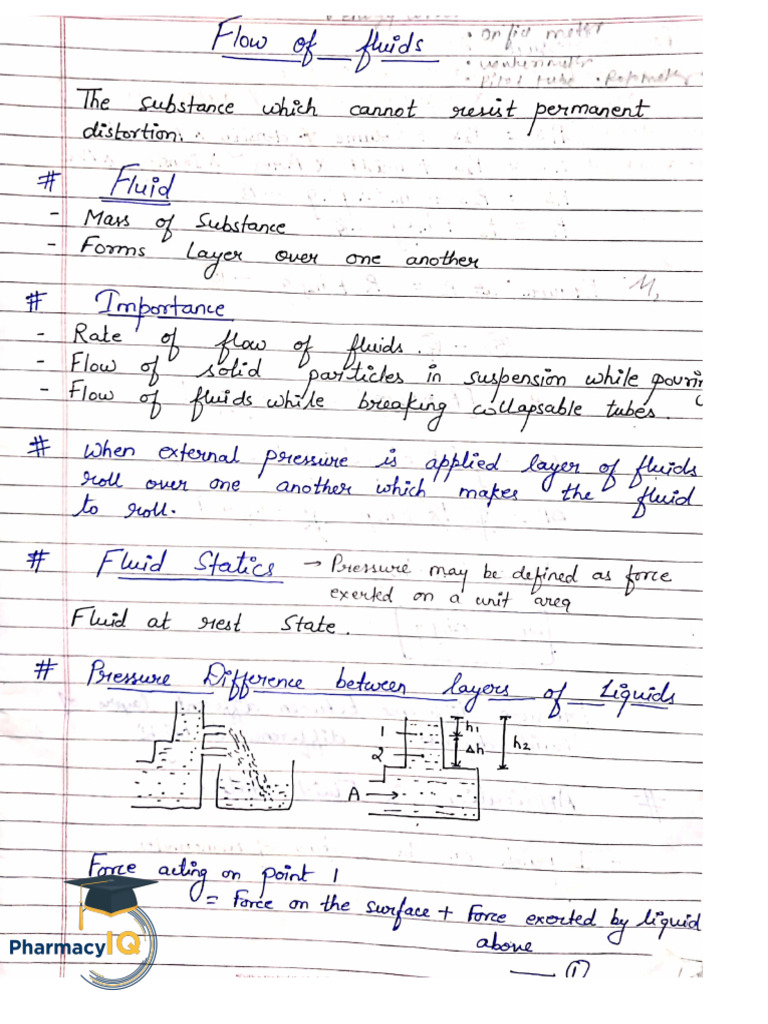 Flow of fluids
• Pitot tube
The substance which cannot resist permanent
distortion.
# Fluid
- Mass of substance
- Forms layer over one another
# Importance
- Rate of flow of fluids.
- Flow of solid particles in suspension while pouri
- Flow of fluids while breaking collapsable tubes.
# When external pressure is applied layer of fluids
roll over one another which makes the fluid
to roll.
# Fluid Statics → Pressure may be defined as force
exerted on a unit area
Fluid at rest state.
# Pressure Difference between layers of Liquids
1
2
A
h1
Δh
h2
Force acting on point 1
= Force on the surface + Force exerted by liquid
above
— (i)
PharmacyIQ